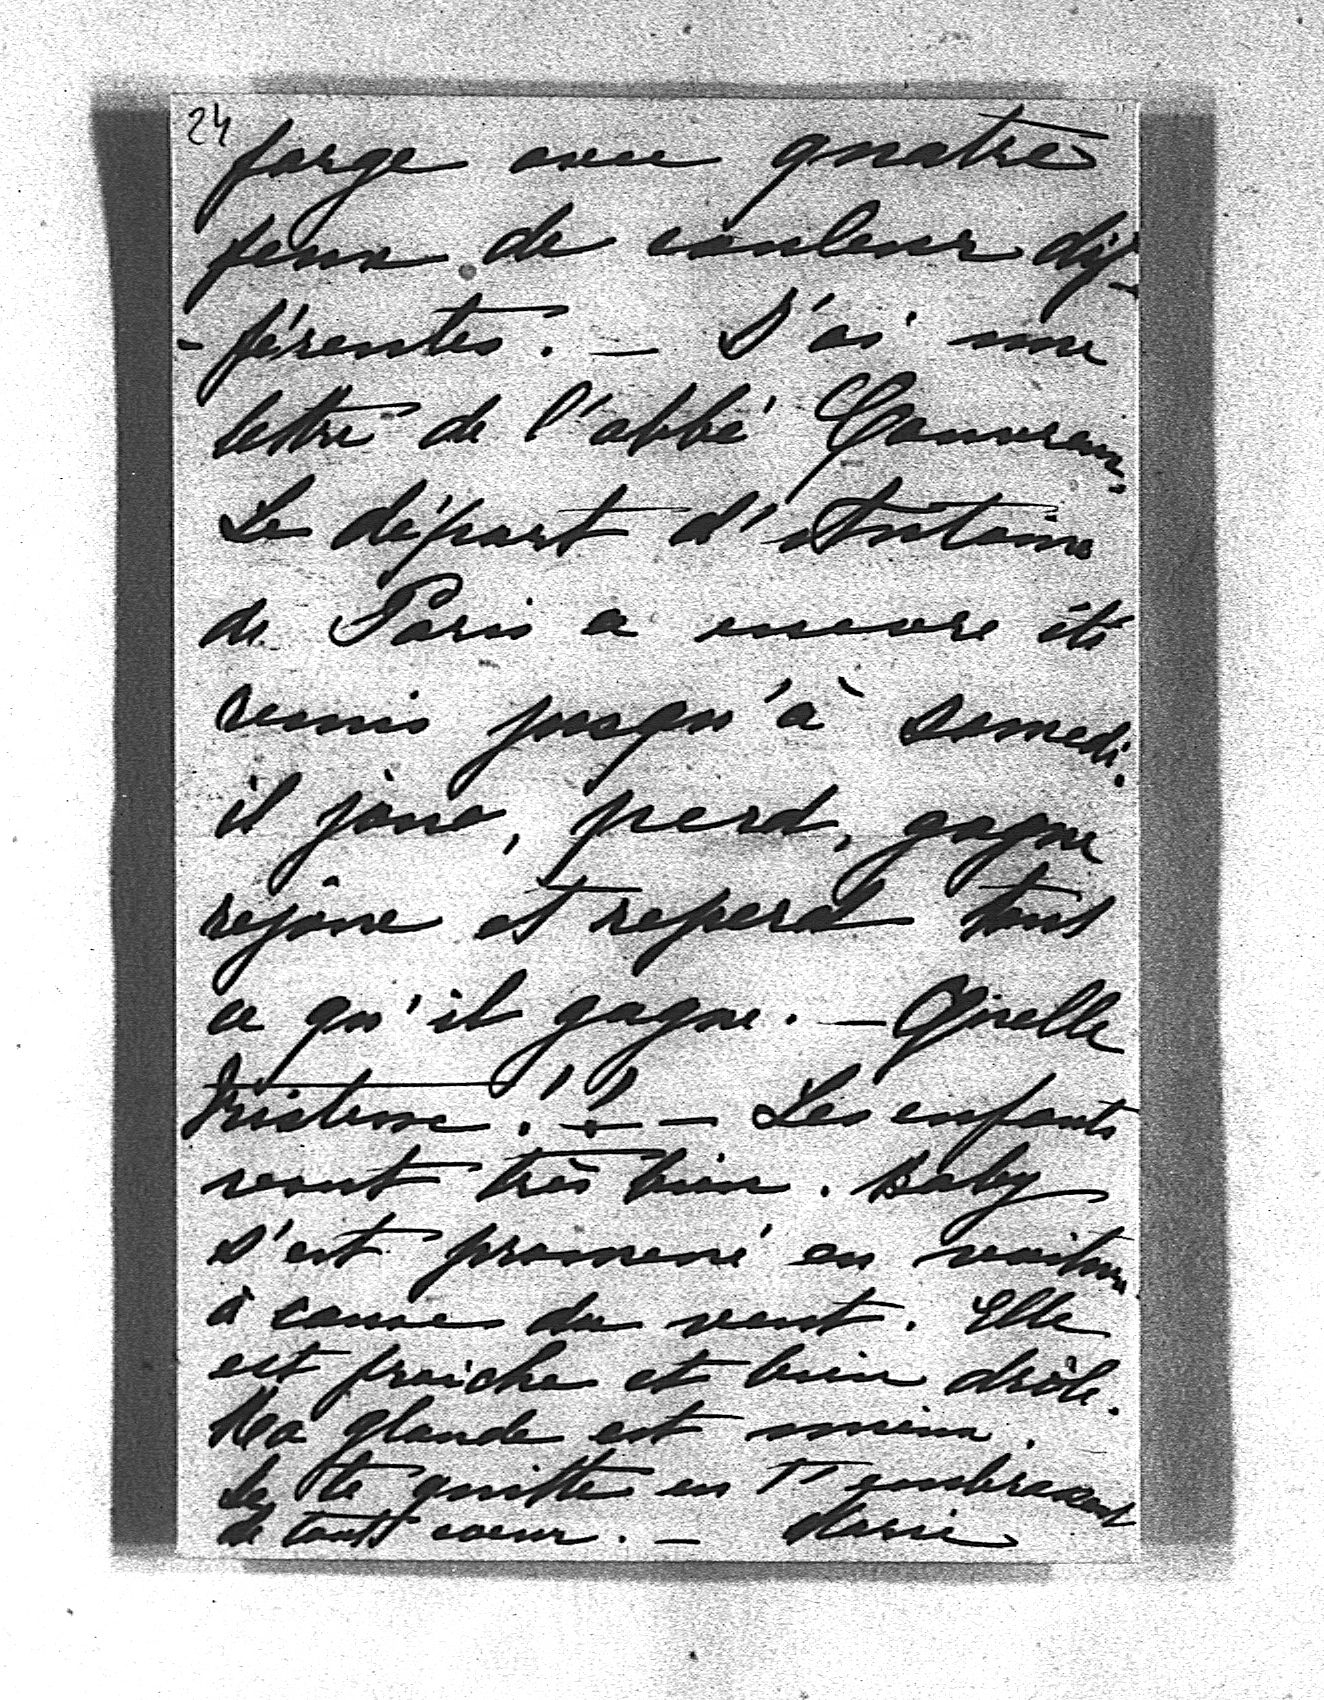 24
forge avec quatre
feux de couleur dif-
-férentes. — J'ai une
lettre de l'abbé
Le départ d'Antoine
de Paris a encore été
remis jusqu'à samedi.
il joue, perd, gagne
rejoue et reperd tout
ce qu'il gagne. — Quelle
tristesse ! ! — Les enfants
vont très bien. Baby
s'est promené en voiture
à cause du vent. Elle
est fraiche et bien drôle.
Ma glande est mieux.
Je te quitte en t'embrassant
de tout coeur. — Marie